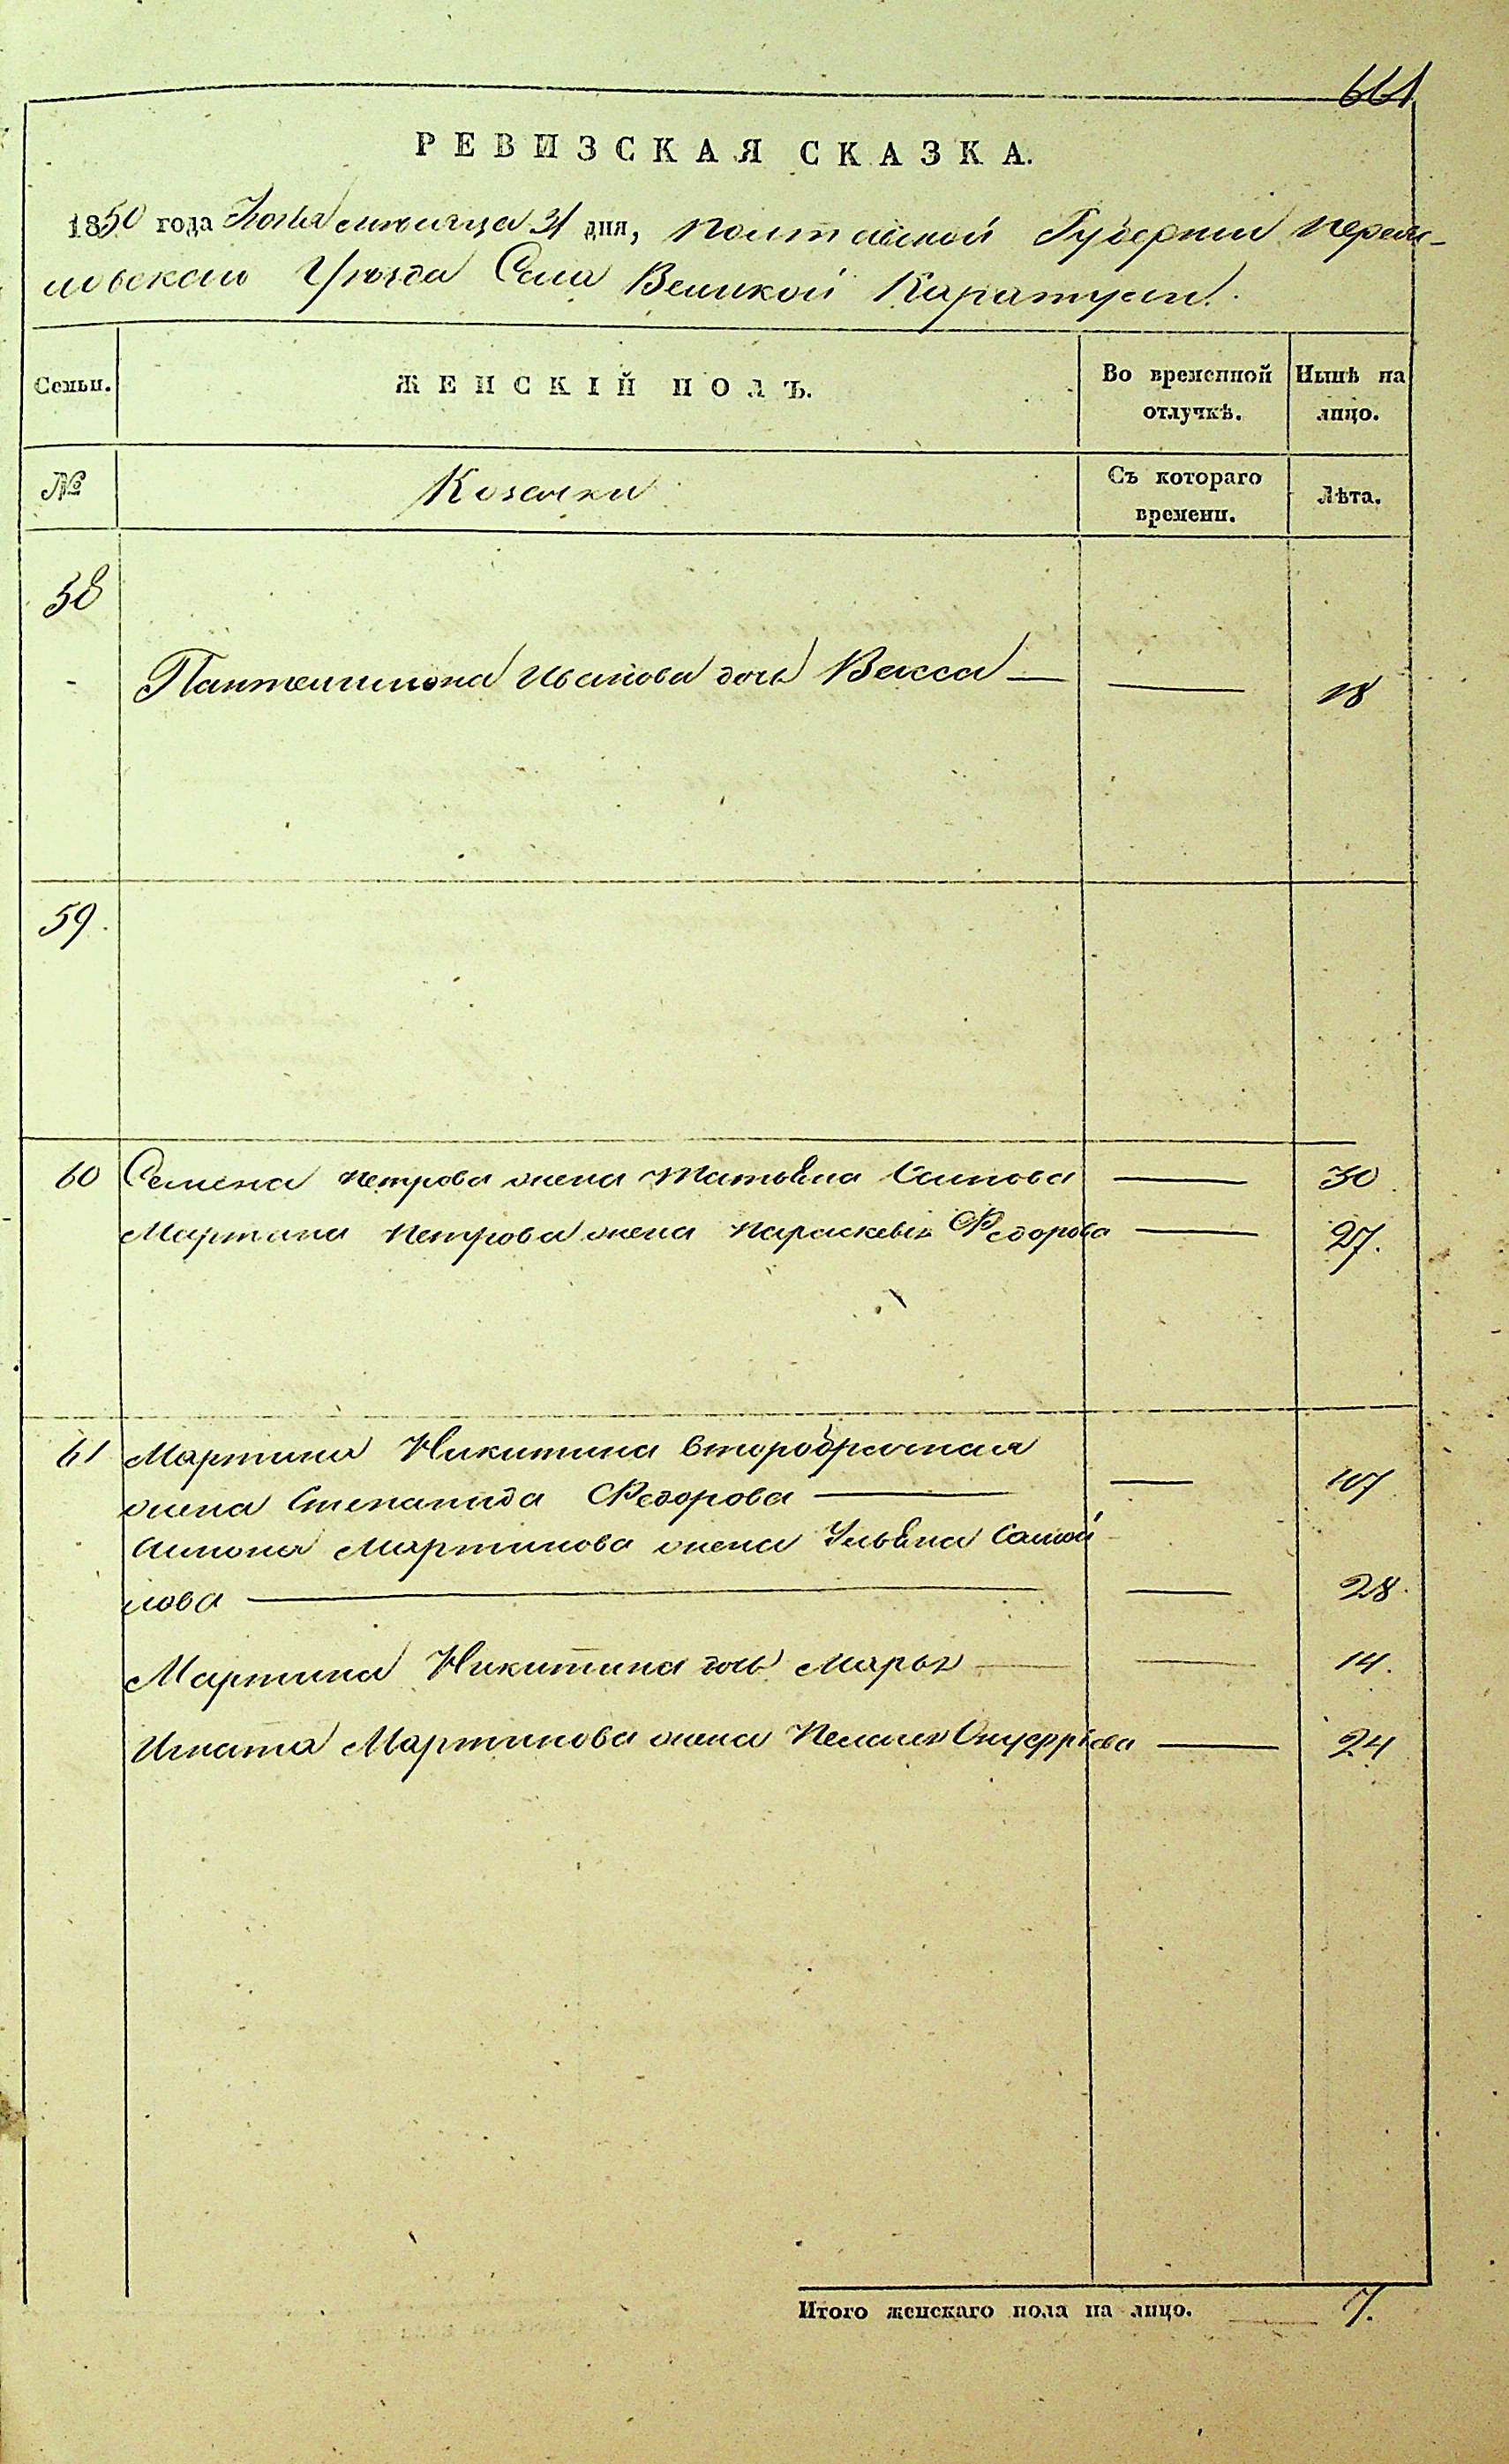 661
РЕВИЗСКАЯ СКАЗКА.
1850 года мѣсяца 31 дня, Полтавской Губерніи Переяс-
ловскаго Уѣзда Села Великой Каратули.
Семьи. ЖЕНСКІЙ ПОЛЪ. Во временной отлучкѣ. Нынѣ на лицо.
№ Козачки Съ котораго времени. Лѣта.
58
Пантелимона Иванова дочь Васса — — 18
59.
60 Семена Петрова жена Татьяна — 30
Мартина Петрова жена Параскевія Федорова — 27.
61 Мартина Никитина второбрачная
жена Степанида Федорова — —
Антона Мартинова жена Ульяна Самой
лова — — 28.
Мартина Никитина дочь Марья — — 14.
Игната Мартинова жена Пелагея Онуфріева — 24
Итого женскаго пола на лицо. — 7.